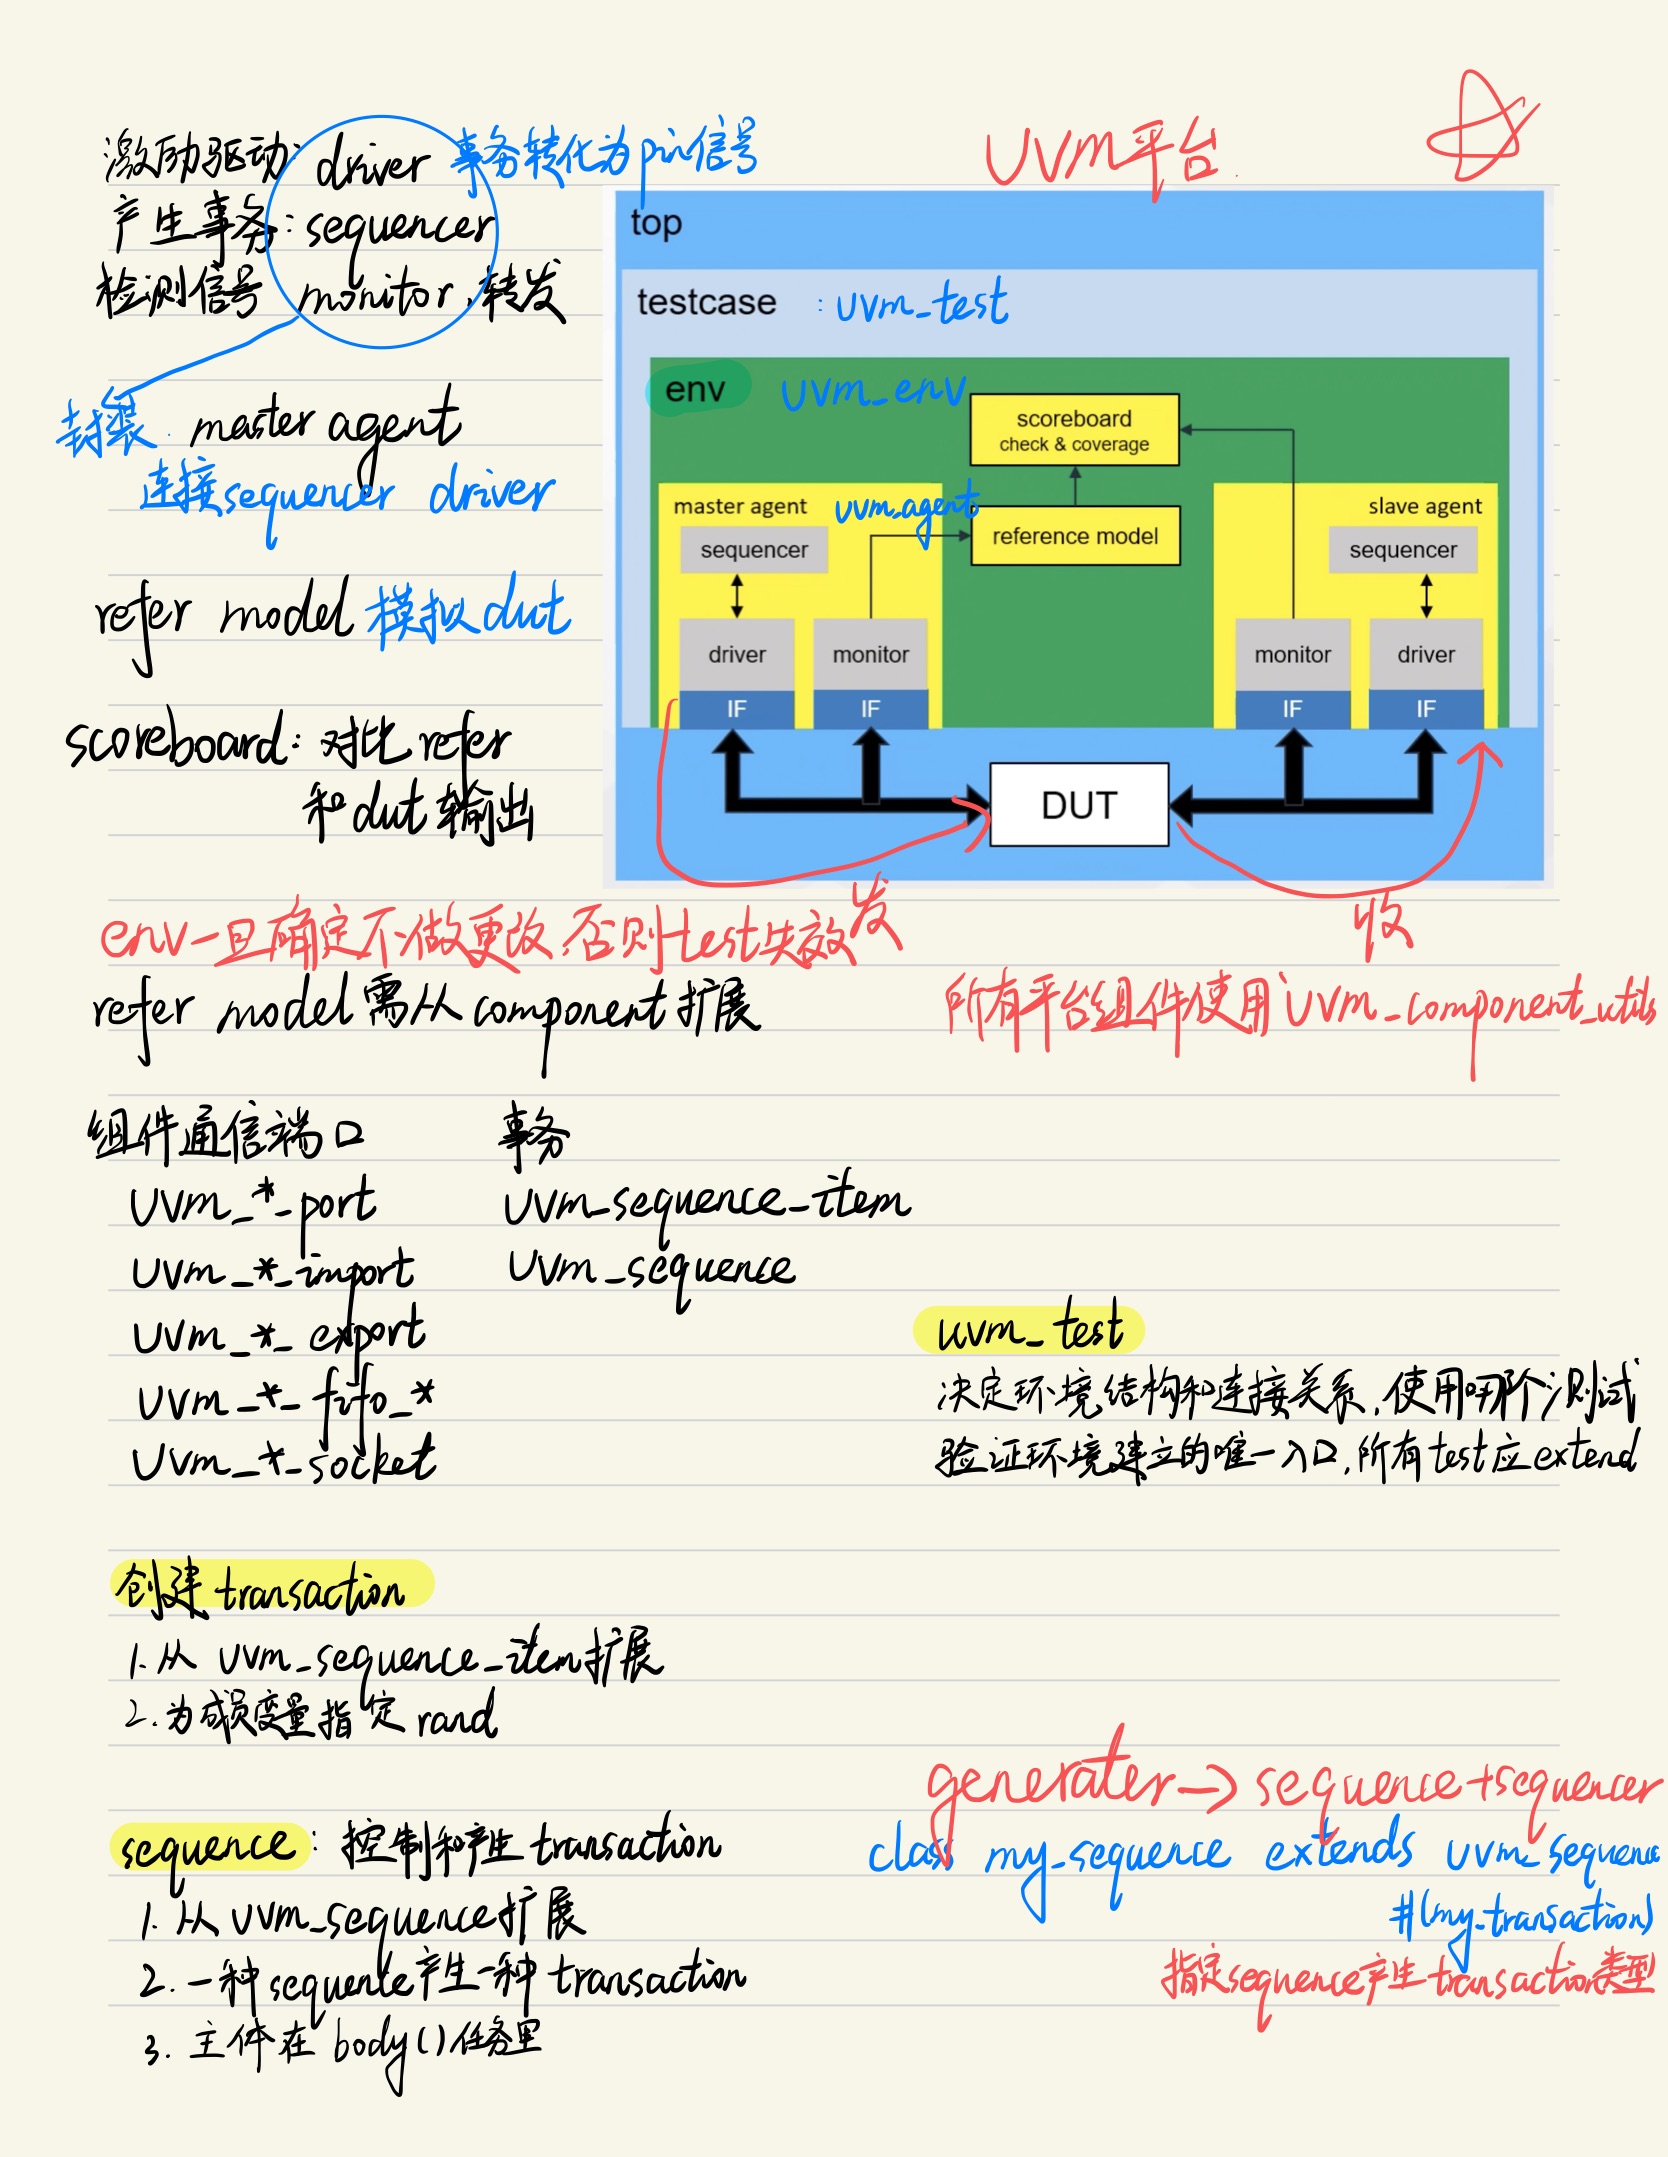 UVM平台
激励驱动: driver 事务转化为pin信号
产生事务: sequencer
检测信号 monitor,转发
封装 master agent
连接sequencer driver
refer model 模拟dut
scoreboard: 对比refer
和dut输出
top
testcase : uvm_test
env uvm_env
scoreboard
check & coverage
master agent uvm_agent
slave agent
reference model
sequencer
sequencer
driver
monitor
monitor
driver
IF
IF
IF
IF
DUT
发
收
env一旦确定不做更改,否则test失效
refer model需从component扩展
所有平台组件使用`uvm_component_utils
组件通信端口 事务
uvm_*_port uvm_sequence_item
uvm_*_import uvm_sequence
uvm_*_export
uvm_*_fifo_*
uvm_*_socket
uvm_test
决定环境结构和连接关系,使用哪个测试
验证环境建立的唯一入口,所有test应extend
创建transaction
1.从uvm_sequence_item扩展
2.为成员变量指定rand
generater→sequence+sequencer
sequence: 控制和产生transaction
class my_sequence extends uvm_sequence
#(my_transaction)
1.从uvm_sequence扩展
指定sequence产生transaction类型
2.一种sequence产生一种transaction
3.主体在body()任务里